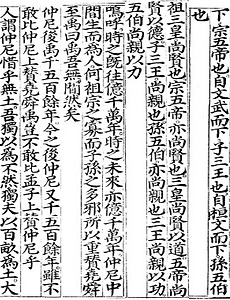 下宗五帝也自文武而下子三王也自桓文而下孫五伯
也
祖三皇尚賢也宗五帝亦尚賢也三皇尚賢以道五帝尚
賢以德子三王尚親也孫五伯亦尚親也三王尚親以功
五伯尚親以力
嗚呼時之既往億千萬年時之未來亦億千萬年仲尼中
間生而為人何祖宗之寡而子孫之多邪所以重贊堯舜
至禹曰禹吾無間然矣
仲尼後禹千五百餘年今之後仲尼又千五百餘年雖不
敢比仲尼上贊堯舜禹豈不敢比孟子上贊仲尼乎
人謂仲尼惜乎無土吾獨以為不然獨夫以百畝為土大